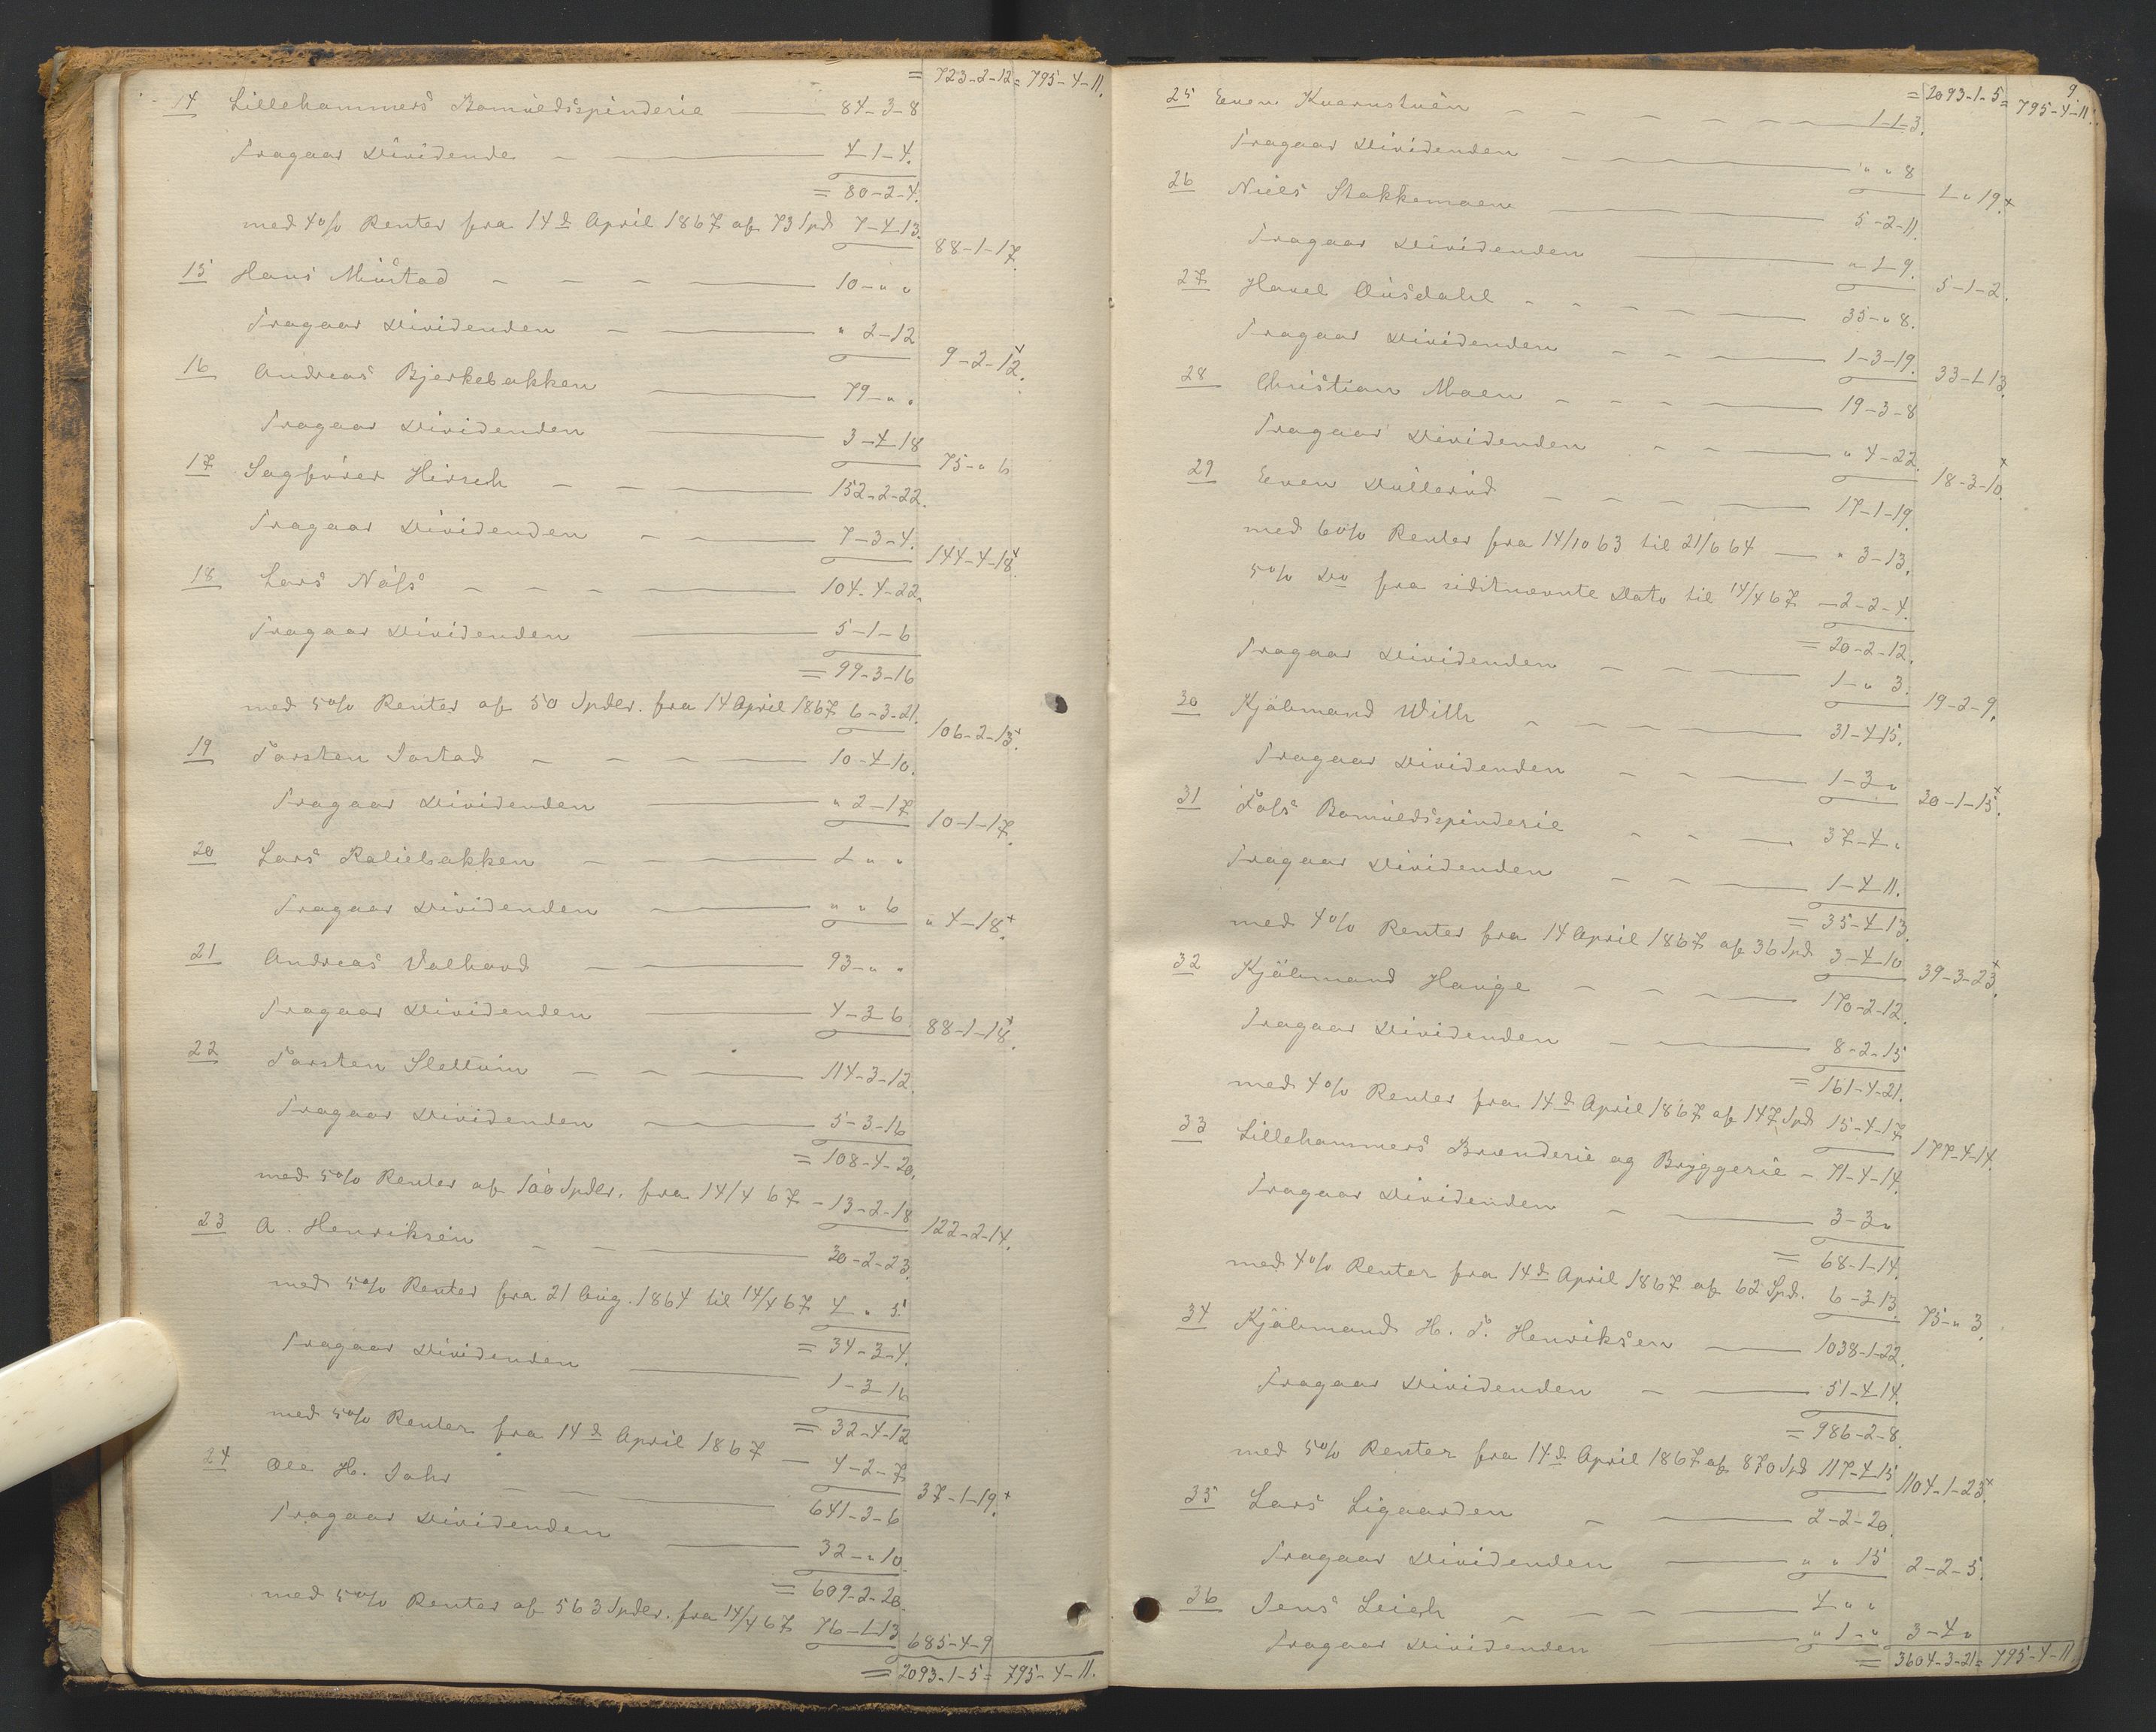 = 723-2-12 = 795-4-11.
14 Lillehammers Bomuldsspinderie — 84-3-8
Fragaar Dividende — 4-1-4.
= 80-2-4.
med 4% Renter fra 14de April 1867 af 73 Spd 7-4-13. 88-1-17.
15 Hans Mustad — 10-" "
Fragaar Dividenden — " 2-12 9-2-12.
16 Andreas Bjerkebakken — 79-" "
Fragaar Dividenden — 3-4-18 75-" 6
17 Sagfører Hirsch — 152-2-22.
Fragaar Dividenden — 7-3-4. 144-4-18.
18 Lars Næss — 104-4-22.
Fragaar Dividenden — 5-1-6
= 99-3-16
med 5% Renter af 50 Spdlr. fra 14 April 1867 6-3-21. 106-2-13.
19 Torsten Jastad — 10-4-10.
Fragaar Dividenden — " 2-17 10-1-17.
20 Lars Kaliebakken — 1 " "
Fragaar Dividenden — " " 6 " 4-18.
21 Andreas Dalhoved — 93-" "
Fragaar Dividenden — 4-3-6 88-1-18.
22 Torsten Slettum — 114-3-12.
Fragaar Dividenden — 5-3-16
= 108-4-20.
med 5% Renter af 100 Spdlr. fra 14/4 67 — 13-2-18 122-2-14.
23 A. Henriksen — 30-2-23.
med 5% Renter fra 21 Aug. 1864 til 14/4 67 4 " 5.
= 34-3-4.
Fragaar Dividenden — 1-3-16
= 32-4-12
med 5% Renter fra 14de April 1867 — 4-2-7 37-1-19.
24 Ole H. Jahr — 641-3-6
Fragaar Dividenden — 32-" 10
= 609-2-20.
med 5% Renter af 563 Spdlr. fra 14/4 67 76-1-13 685-4-9
= 2093-1-5 = 795-4-11.
9
= 2093-1-5 = 795-4-11.
25 Even Kvernstuen — 1-1-3.
Fragaar Dividenden — " " 8 1 " 19.
26 Niels Stakkemoen — 5-2-11.
Fragaar Dividenden — " 1-9. 5-1-2.
27 Havel Ausdahl — 35-" 8.
Fragaar Dividenden — 1-3-19. 33-1-13.
28 Christian Moen — 19-3-8
Fragaar Dividenden — " 4-22. 18-3-10.
29 Even Dullerud — 17-1-19.
med 6% Renter fra 14/10 63 til 21/6 64 — " 3-13.
5% Do fra sidstnævnte Dato til 14/4 67 — 2-2-4.
= 20-2-12.
Fragaar Dividenden — 1-" 3. 19-2-9.
30 Kjøbmand With — 31-4-15.
Fragaar Dividenden — 1-3 " 30-1-15.
31 Fos Bomuldsspinderie — 37-4 "
Fragaar Dividenden — 1-4-11.
= 35-4-13.
med 4% Renter fra 14 April 1867 af 36 Spd 3-4-10 39-3-23.
32 Kjøbmand Hauge — 170-2-12.
Fragaar Dividenden — 8-2-15
= 161-4-21.
med 4% Renter fra 14de April 1867 af 147 Spd 15-4-17 177-4-14.
33 Lillehammers Brænderie og Bryggerie — 71-4-14.
Fragaar Dividenden — 3-3 "
= 68-1-14.
med 4% Renter fra 14de April 1867 af 62 Spd. 6-3-13. 75-" 3.
34 Kjøbmand H. T. Henriksen — 1038-1-22.
Fragaar Dividenden — 51-4-14.
= 986-2-8.
med 5% Renter fra 14de April 1867 af 870 Spd 117-4-15 1104-1-23.
35 Lars Ligaarden — 2-2-20.
Fragaar Dividenden — " " 15 2-2-5.
36 Jens Leich — 4 " "
Fragaar Dividenden — " 1-" 3-4 "
= 3604-3-21 = 795-4-11.